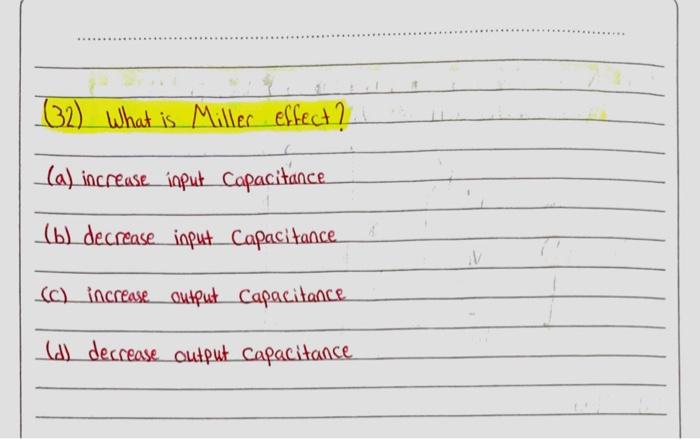 (32) What is Miller effect?
(a) increase input Capacitance
(b) decrease input Capacitance
(c) increase output Capacitance
(d) decrease output Capacitance